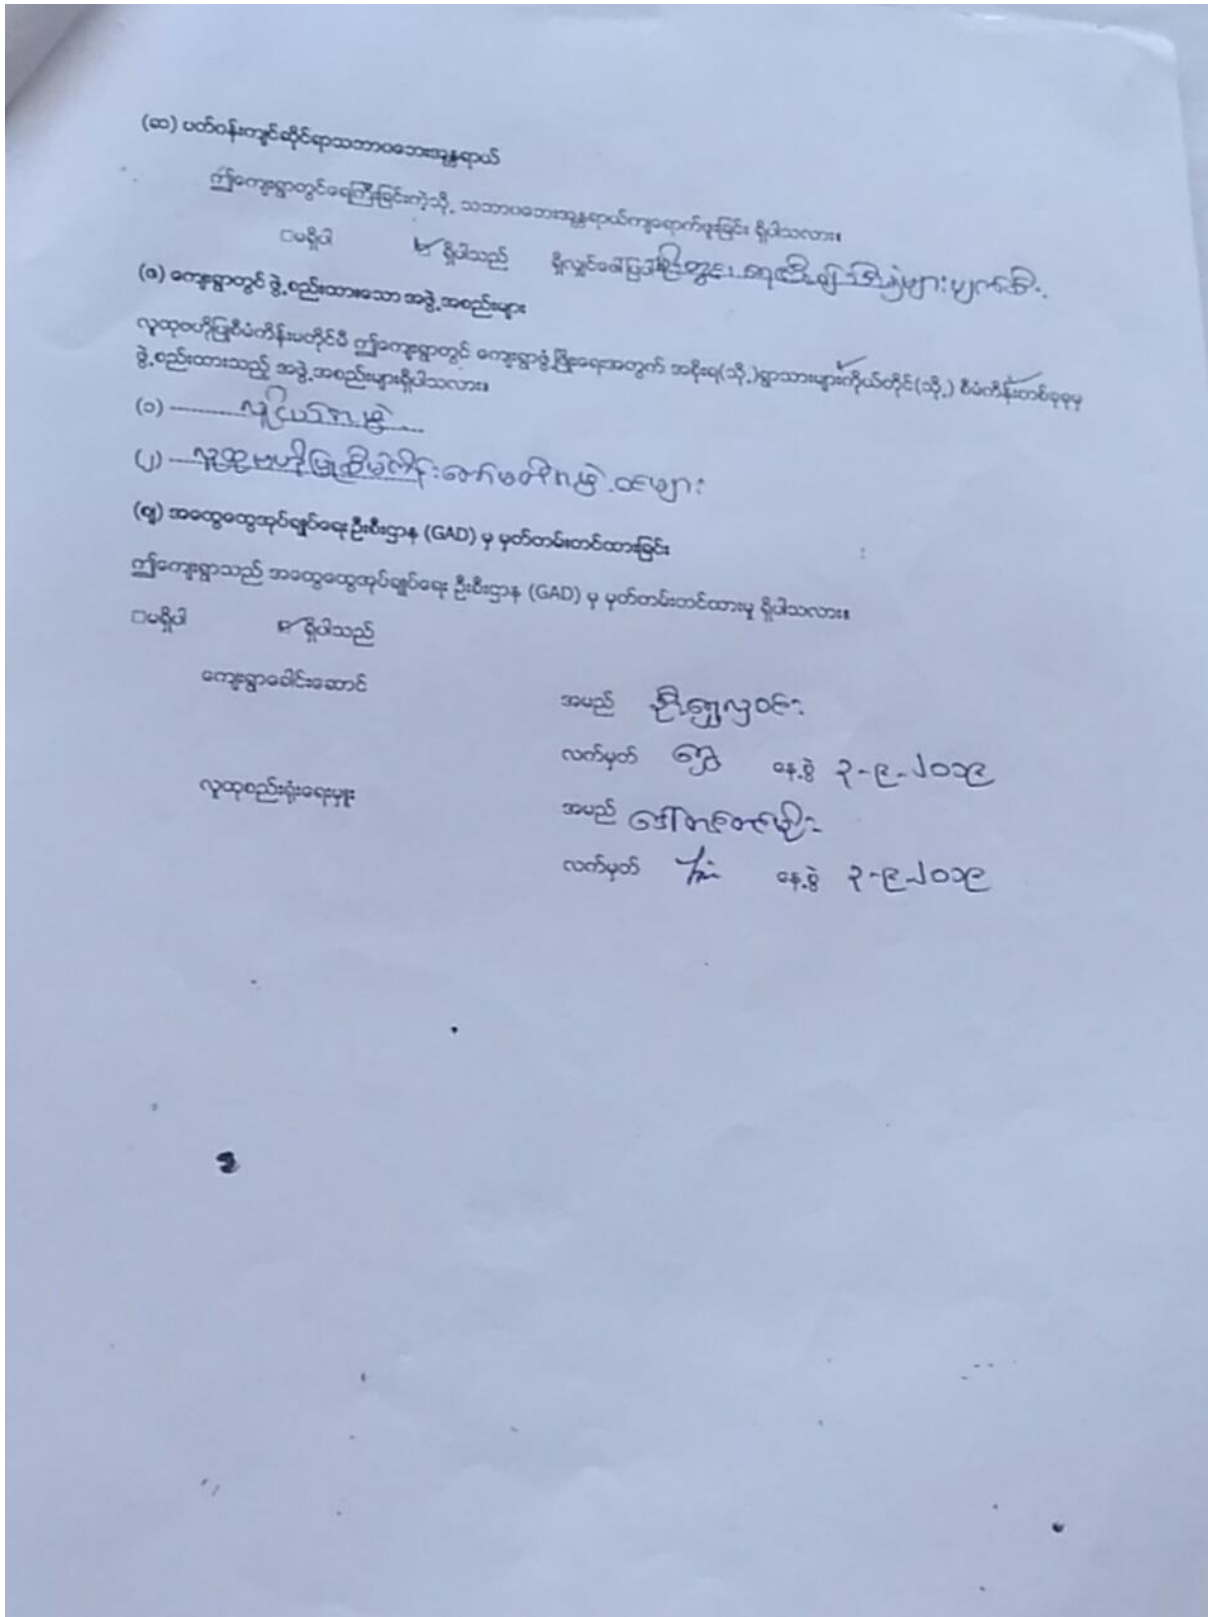 (ဆ) ပတ်ဝန်းကျင်ဆိုင်ရာသဘာဝဘေးအန္တရာယ်
ဤကျေးရွာတွင်ရေကြီးခြင်းကဲ့သို့ သဘာဝဘေးအန္တရာယ်ကျရောက်ဖူးခြင်း ရှိပါသလား။
□မရှိပါ ☑ ရှိပါသည် ရှိလျှင်ဖော်ပြပါ မိုးတွင်း ရေကြီး၍ များပျက်စီး
(ဇ) ကျေးရွာတွင် ဖွဲ့စည်းထားသော အဖွဲ့အစည်းများ
လူထုဗဟိုပြုစီမံကိန်းမတိုင်မီ ဤကျေးရွာတွင် ကျေးရွာဖွံ့ဖြိုးရေးအတွက် အစိုးရ(သို့)ရွာသားများကိုယ်တိုင်(သို့) စီမံကိန်းတစ်ခုခုမှ
ဖွဲ့စည်းထားသည့် အဖွဲ့အစည်းများရှိပါသလား။
(၁) လူငယ်အဖွဲ့
(၂) လူထုဗဟိုပြုစီမံကိန်းကော်မတီအဖွဲ့ဝင်များ
(ဈ) အထွေထွေအုပ်ချုပ်ရေးဦးစီးဌာန (GAD) မှ မှတ်တမ်းတင်ထားခြင်း
ဤကျေးရွာသည် အထွေထွေအုပ်ချုပ်ရေး ဦးစီးဌာန (GAD) မှ မှတ်တမ်းတင်ထားမှု ရှိပါသလား။
□မရှိပါ ☑ ရှိပါသည်
ကျေးရွာခေါင်းဆောင် အမည် ဦးရွှေလှဝင်း
လက်မှတ် ရွှေ နေ့စွဲ ၃-၉-၂၀၁၉
လူထုစည်းရုံးရေးမှူး အမည် ဒေါ်တင်တင်မိုး
လက်မှတ် နေ့စွဲ ၃-၉-၂၀၁၉